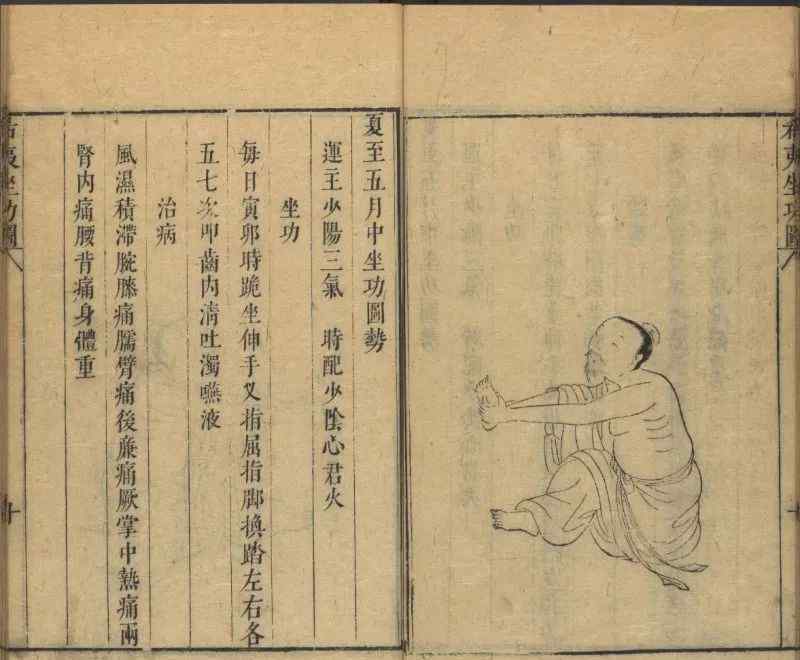 希夷坐功圖
夏至五月中坐功圖勢
運主少陽三氣　時配少陰心君火
坐功
每日寅卯時跪坐伸手叉指屈指脚換踏左右各
五七次叩齒內清吐濁嚥液
治病
風濕積滯腕膝痛臑臂痛後廉痛厥掌中熱痛兩
腎內痛腰背痛身體重
希夷坐功圖